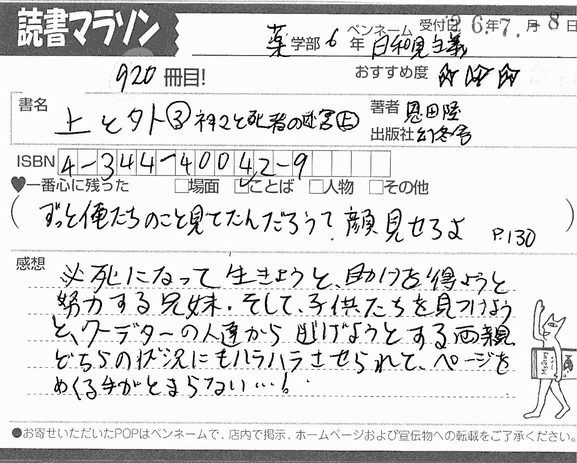 読書マラソン
薬学部6年 ペンネーム 日和見主義 受付日 26年7.月-8日
920冊目! おすすめ度 ☆☆☆
書名 上と外③神々と死者の迷宮㊤ 著者 恩田陸
出版社 幻冬舎
ISBN 4-344-40042-9
♥一番心に残った □場面 ☑ことば □人物 □その他
(ずっと俺たちのこと見てたんだろう?顔見せろよ P.130)
感想 必死になって生きようと、助けを得ようと
努力する兄妹。そして、子供たちを見つけよう
と、クーデターの人達から逃げようとする両親
どちらの状況にもハラハラさせられて、ページを
めくる手がとまらない…!
●お寄せいただいたPOPはペンネームで、店内で掲示、ホームページおよび宣伝物への転載をご了承ください。